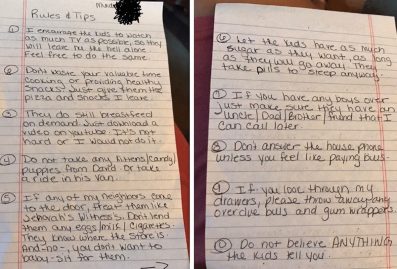 Rules & Tips
① I encourage the kids to watch
as much TV as possible, so they
will leave me the hell alone.
Feel free to do the same.
② Don't waste your valuable time
cooking or providing healthy
snacks. Just give them the
pizza and snacks I leave.
③ They do still breastfeed
on demand. Just download a
video on youtube. It's not
hard or I would not do it.
④ Do not take any kittens/candy/
puppies from David. Or take
a ride in his van.
⑤ If any of my neighbors come
to the door, treat them like
Jehovah's Witness's. Don't lend
them any eggs/milk/cigarettes.
They know where the store is.
And-no-, you don't want to
baby-sit for them.
⑥ Let the kids have as much
sugar as they want, as long
as they will go away. They
take pills to sleep anyway.
⑦ If you have any boys over
just make sure they have an
Uncle/Dad/Brother/friend that I
can call later.
⑧ Don't answer the house phone
unless you feel like paying bills.
⑨ If you look through my
drawers, please throw away any
overdue bills and gum wrappers.
⑩ Do not believe ANYTHING
the kids tell you.